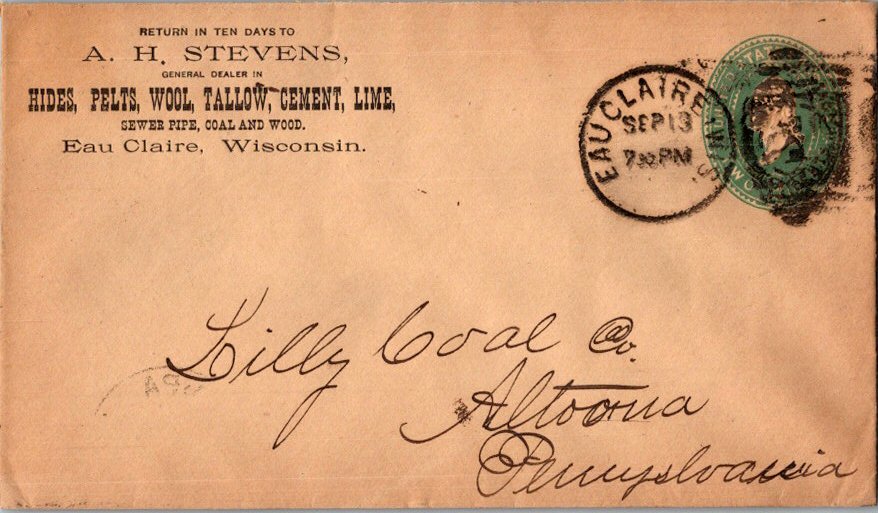 RETURN IN TEN DAYS TO
A. H. STEVENS,
GENERAL DEALER IN
HIDES, PELTS, WOOL, TALLOW, CEMENT, LIME,
SEWER PIPE, COAL AND WOOD.
Eau Claire, Wisconsin.
EAU CLAIRE WIS
SEP 13
7 30 PM
Lilly Coal Co.
Altoona
Pennyslvania